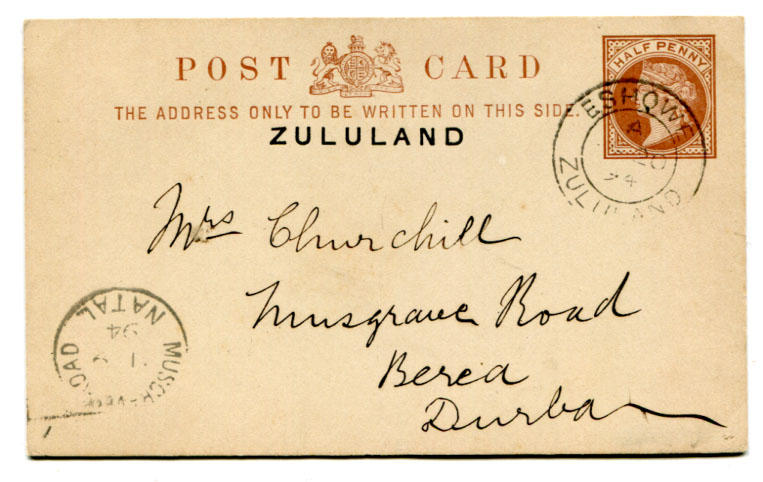 POST CARD
THE ADDRESS ONLY TO BE WRITTEN ON THIS SIDE.
ZULULAND
HALF PENNY
ESHOWE
A
20
94
ZULULAND
Mrs Churchill
Musgrave Road
Berea
Durban
NATAL
94
ROAD